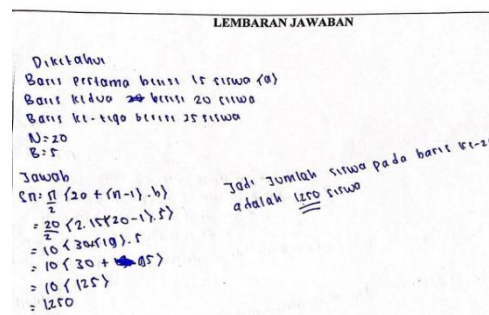 LEMBARAN JAWABAN
Diketahui
Baris pertama berisi 15 siswa (a)
Baris kedua berisi 20 siswa
Baris ke-tiga berisi 25 siswa
N=20
B=5
Jawab
Sn=n/2 {20+(n-1).b}
=20/2 {2.15(20-1).5}
=10{30+(19).5
=10{30+95}
=10{125}
=1250
Jadi Jumlah siswa pada baris ke-20
adalah 1250 siswa